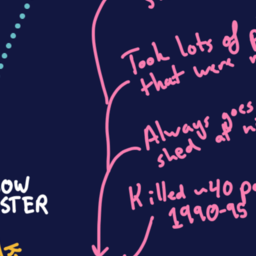 Took lots of
that were
Always goes
shed at
Killed ~40
1990-95
OW
STER